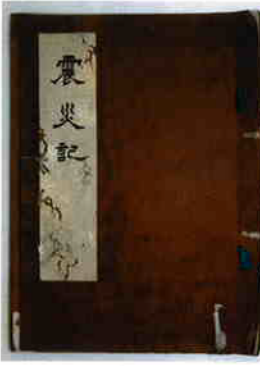 震災記